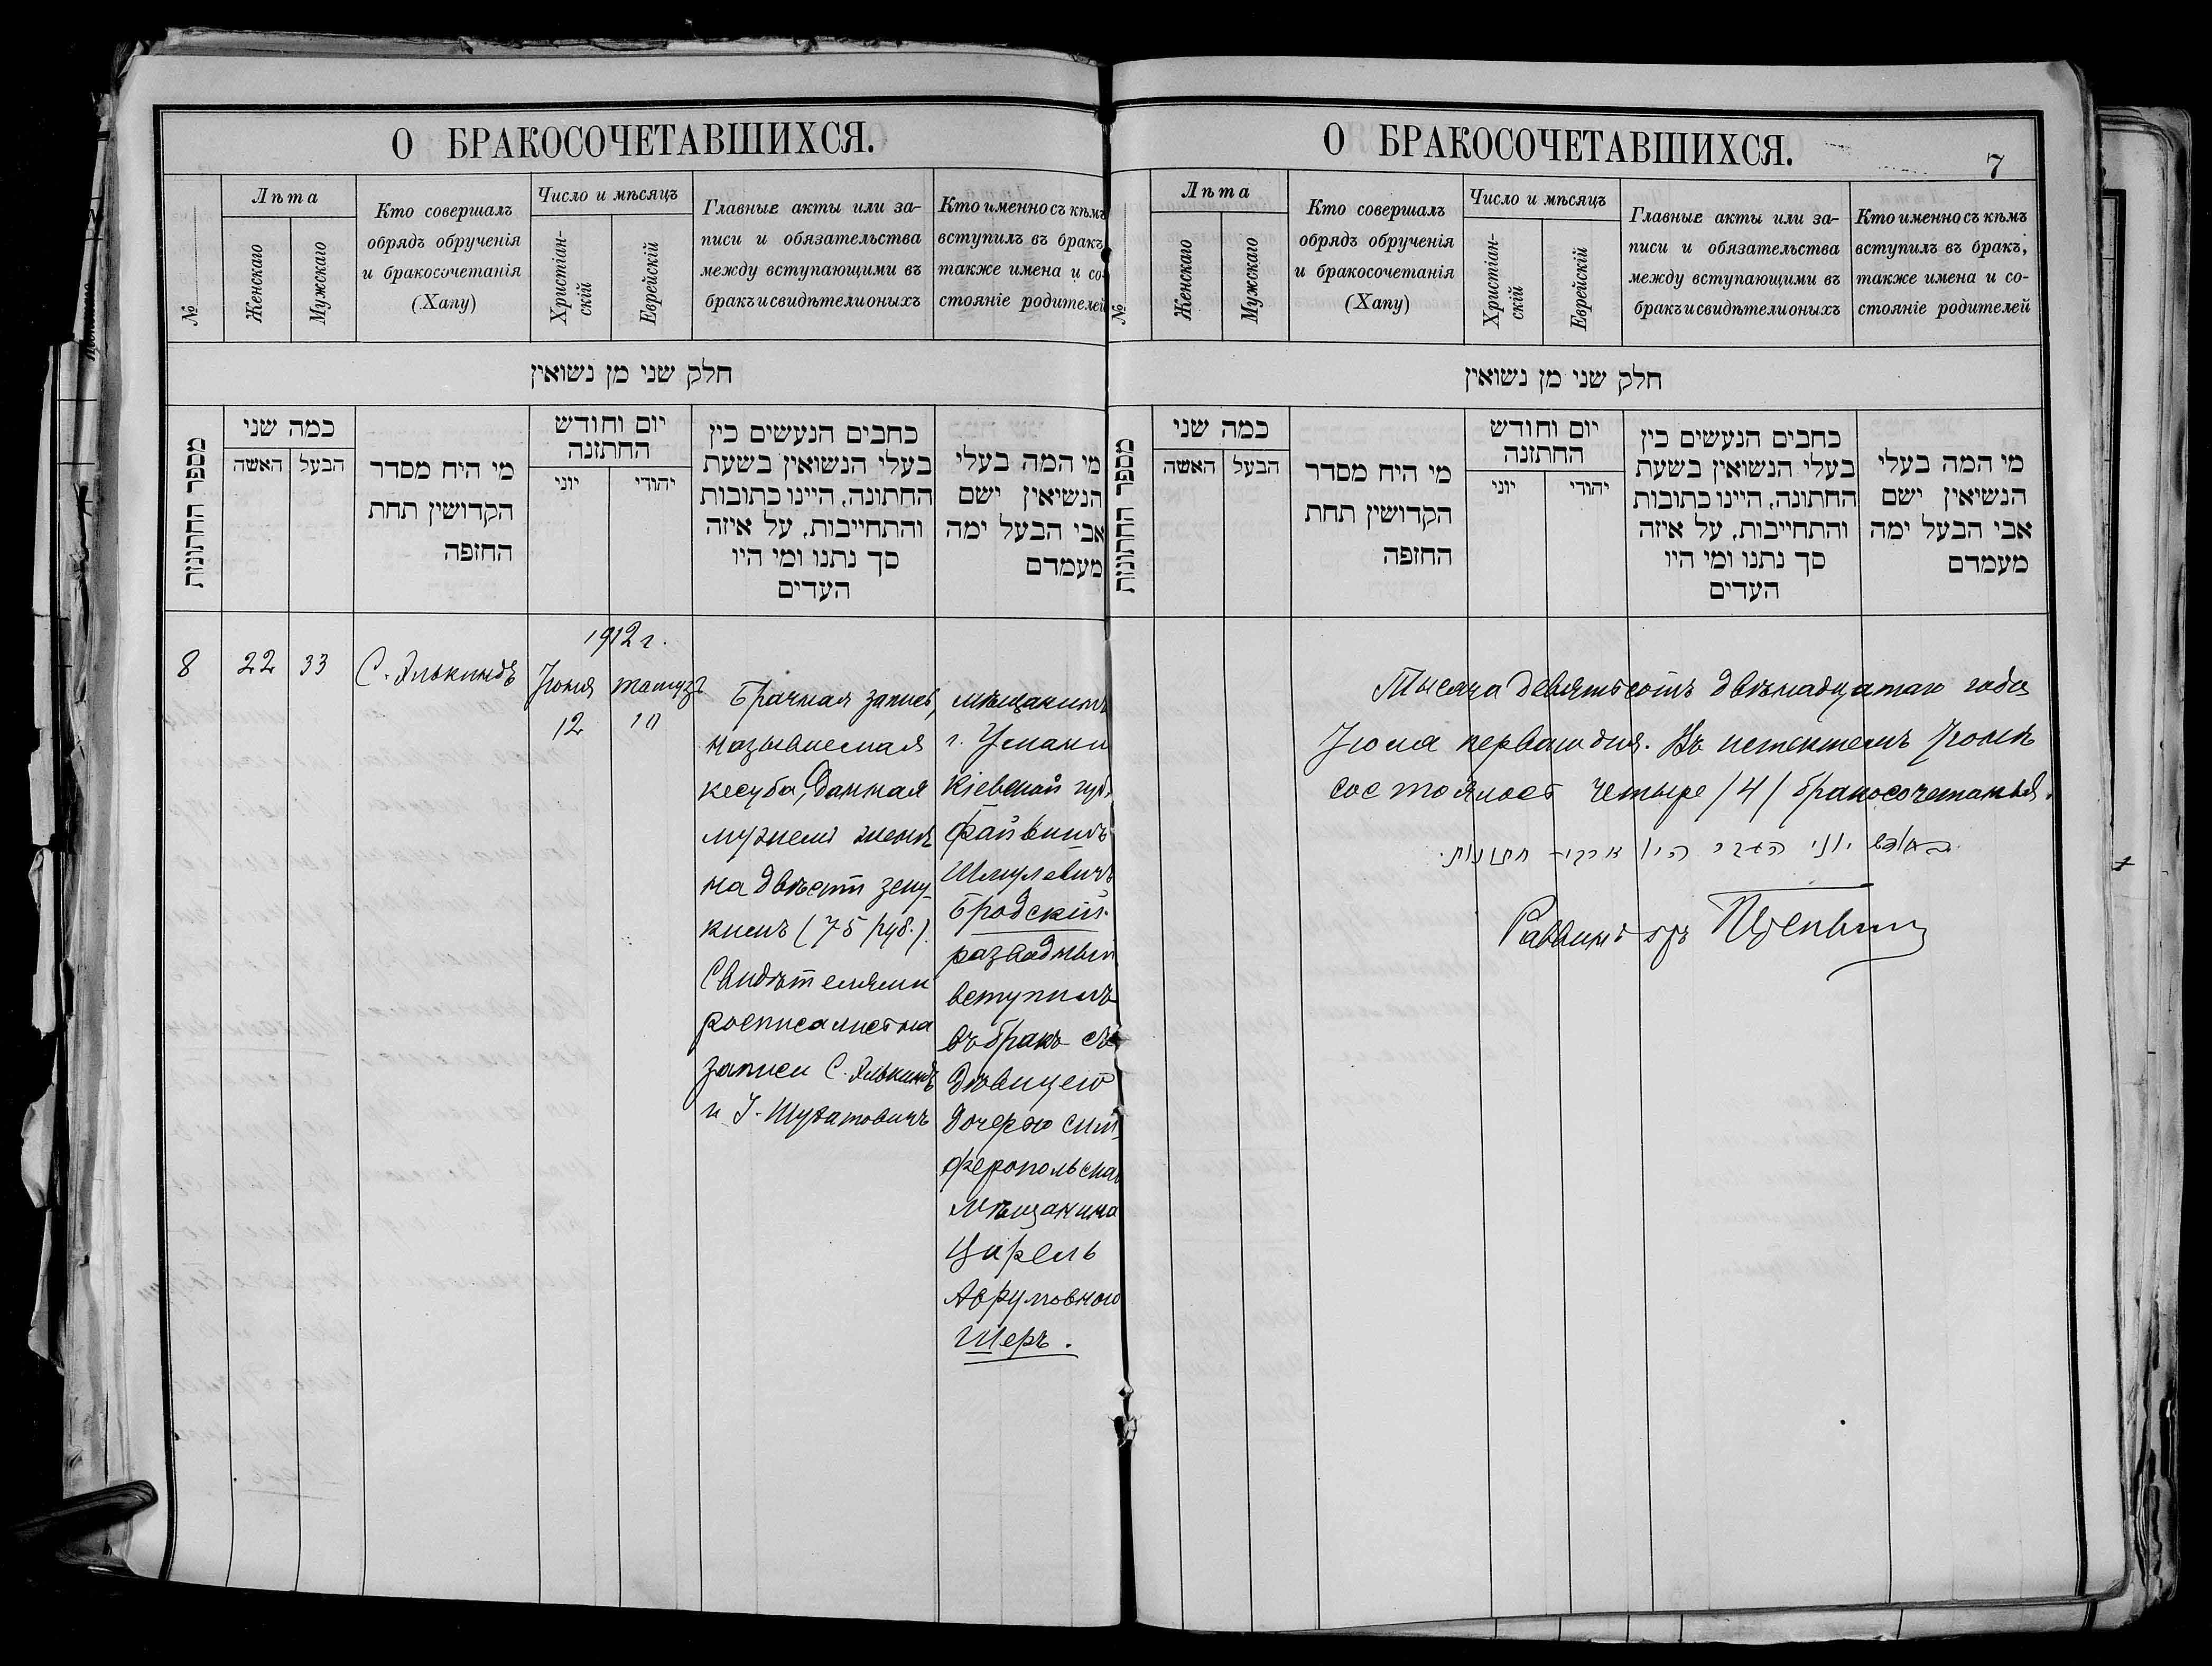 О БРАКОСОЧЕТАВШИХСЯ.
№
Лѣта
Женскаго
Мужскаго
Кто совершалъ
обрядъ обрученія
и бракосочетанія
(Хапу)
Число и мѣсяцъ
Христіан-
скій
Еврейскій
Главные акты или за-
писи и обязательства
между вступающими въ
бракъ и свидѣтели оныхъ
Кто именно съ кѣмъ
вступилъ въ бракъ
также имена и со-
стояніе родителей
חלק שני מן נשואין
מספר החתונות
כמה שני
האשה
הבעל
מי היח מסדר
הקדושין תחת
החזפה
יום וחודש
החתזנה
יוני
יהודי
כחבים הנעשים כין
בעלי הנשואין בשעת
החתונה, היינו כתובות
והתחייבות, על איזה
סך נתנו ומי היו
העדים
מי המה בעלי
הנשיאין ישם
אבי הבעל ימה
מעמדם
8
22
33
С. Элькиндъ
1912 г.
Іюня
12
Тамузъ
10
Брачная запись,
называемая
кесуба, данная
мужемъ женѣ
на двѣсти зеку-
кимъ (75 руб.).
Свидѣтелями
росписались на
записи С. Элькиндъ
и
мѣщанинъ
г. Умани
Кіевской губ.
Файвишъ
Шмулевичъ
Бродскій
разводный
вступилъ
въ бракъ съ
дѣвицею
дочерью сим-
феропольска
мѣщанина
Цирель
Аврумовною
Шеръ.
О БРАКОСОЧЕТАВШИХСЯ.
7
№
Лѣта
Женскаго
Мужскаго
Кто совершалъ
обрядъ обрученія
и бракосочетанія
(Хапу)
Число и мѣсяцъ
Христіан-
скій
Еврейскій
Главные акты или за-
писи и обязательства
между вступающими въ
бракъ и свидѣтели оныхъ
Кто именно съ кѣмъ
вступилъ въ бракъ,
также имена и со-
стояніе родителей
חלק שני מן נשואין
מספר החתונות
כמה שני
האשה
הבעל
מי היח מסדר
הקדושין תחת
החזפה
יום וחודש
החתזנה
יוני
יהודי
כחבים הנעשים כין
בעלי הנשואין בשעת
החתונה, היינו כתובות
והתחייבות, על איזה
סך נתנו ומי היו
העדים
מי המה בעלי
הנשיאין ישם
אבי הבעל ימה
מעמדם
Тысяча девятьсотъ двѣнадцатаго года
Іюля перваго дня. Въ истекшемъ Іюнѣ
состоялось четыре /4/ бракосочетанья.
יוני היו חתונות.
Раввинъ